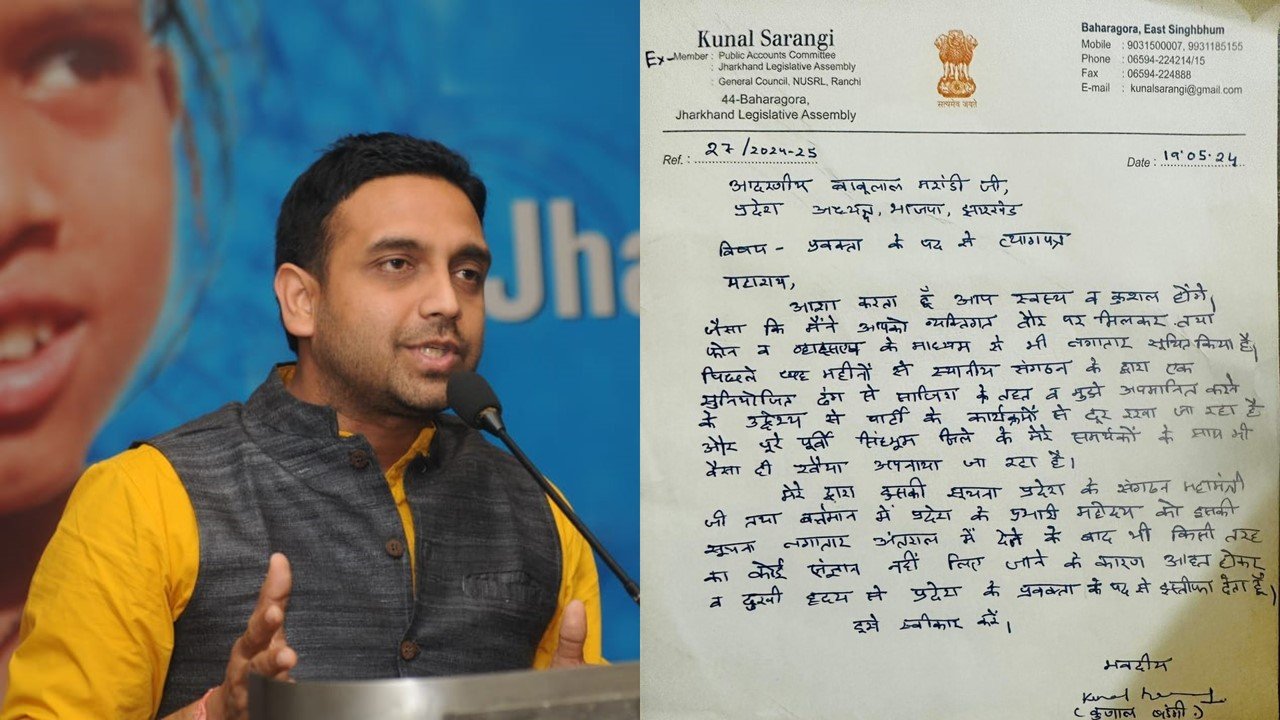 Jha
Kunal Sarangi
Ex- Member : Public Accounts Committee
: Jharkhand Legislative Assembly
: General Council, NUSRL, Ranchi
44-Baharagora,
Jharkhand Legislative Assembly
सत्यमेव जयते
Baharagora, East Singhbhum
Mobile : 9031500007, 9931185155
Phone : 06594-224214/15
Fax : 06594-224888
E-mail : kunalsarangi@gmail.com
Ref. : 27/2024-25
Date : 19.05.24
आदरणीय बाबूलाल मरांडी जी,
प्रदेश अध्यक्ष, भाजपा, झारखंड
विषय - प्रवक्ता के पद से त्यागपत्र
महाशय,
आशा करता हूँ आप स्वस्थ व कुशल होंगे,
जैसा कि मैंने आपको व्यक्तिगत तौर पर मिलकर तथा
फोन व व्हाट्सएप के माध्यम से भी लगातार सूचित किया है।
पिछले महीनों से स्थानीय संगठन के द्वारा एक
सुनियोजित ढंग से साजिश के तहत व मुझे अपमानित करने
के उद्देश्य से पार्टी के कार्यक्रमों से दूर रखा जा रहा है
और पूरे पूर्वी सिंहभूम जिले के मेरे समर्थकों के साथ भी
वैसा ही रवैया अपनाया जा रहा है।
मेरे द्वारा इसकी सूचना प्रदेश के संगठन महामंत्री
जी तथा वर्तमान में प्रदेश के प्रभारी महोदय को इसकी
सूचना लगातार अंतराल में देने के बाद भी किसी तरह
का कोई संज्ञान नहीं लिए जाने के कारण आहत होकर
व दुखी हृदय से प्रदेश के प्रवक्ता के पद से इस्तीफा देता हूँ,
इसे स्वीकार करें।
भवदीय
Kunal
(कुणाल षड़ंगी)